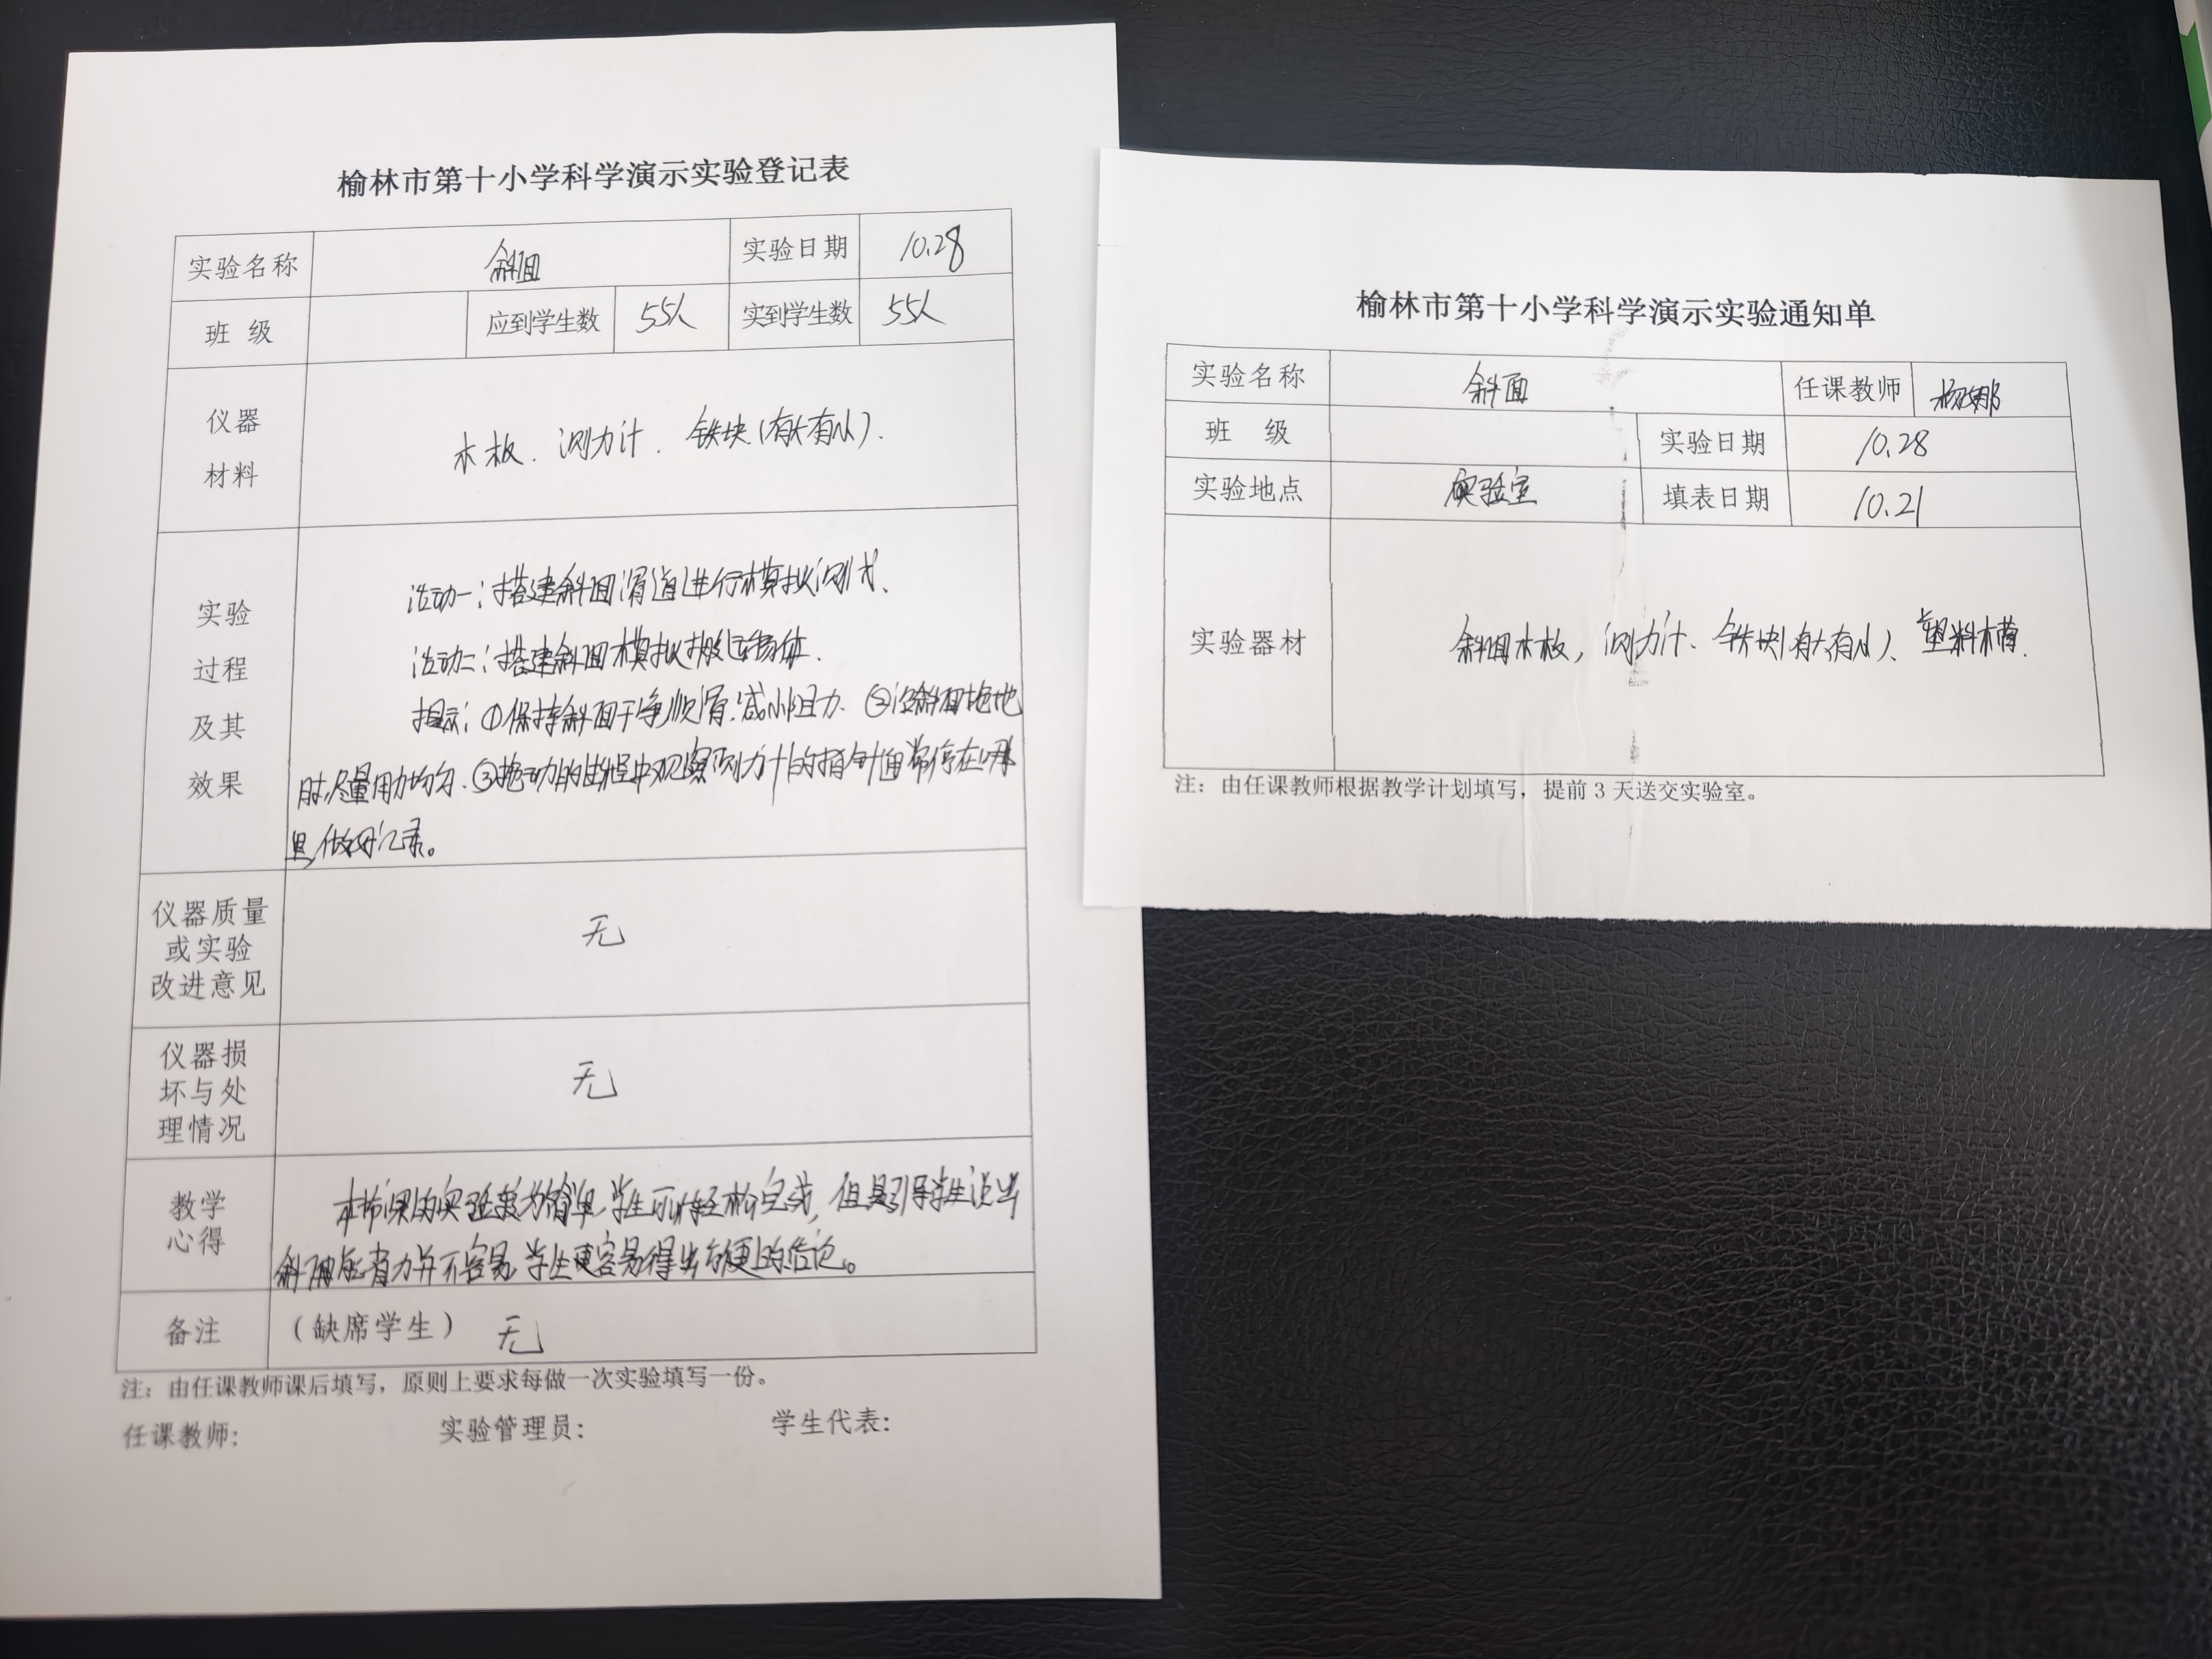 榆林市第十小学科学演示实验登记表
实验名称 斜面 实验日期 10.28
班 级 应到学生数 55人 实到学生数 55人
仪器
材料
木板、测力计、铁块(有大有小).
实验
过程
及其
效果
活动一:搭建斜面滑道进行模拟测试、
活动二:搭建斜面模拟搬运物体.
提示:①保持斜面干净顺滑.减小阻力.②沿斜面拖地
时,尽量用力均匀.③拖动的过程中观察测力计的指针通常停在哪
里,做好记录。
仪器质量
或实验
改进意见
无
仪器损
坏与处
理情况
无
教学
心得
本节课的实验较为简单,学生可以轻松完成,但是引导学生说出
斜面能省力并不容易,学生更容易得出方便上的结论。
备注 (缺席学生) 无
注:由任课教师课后填写,原则上要求每做一次实验填写一份。
任课教师: 实验管理员: 学生代表:
榆林市第十小学科学演示实验通知单
实验名称 斜面 任课教师
班 级 实验日期 10.28
实验地点 实验室 填表日期 10.21
实验器材 斜面木板,测力计、铁块(有大有小)、塑料槽.
注:由任课教师根据教学计划填写,提前 3 天送交实验室。